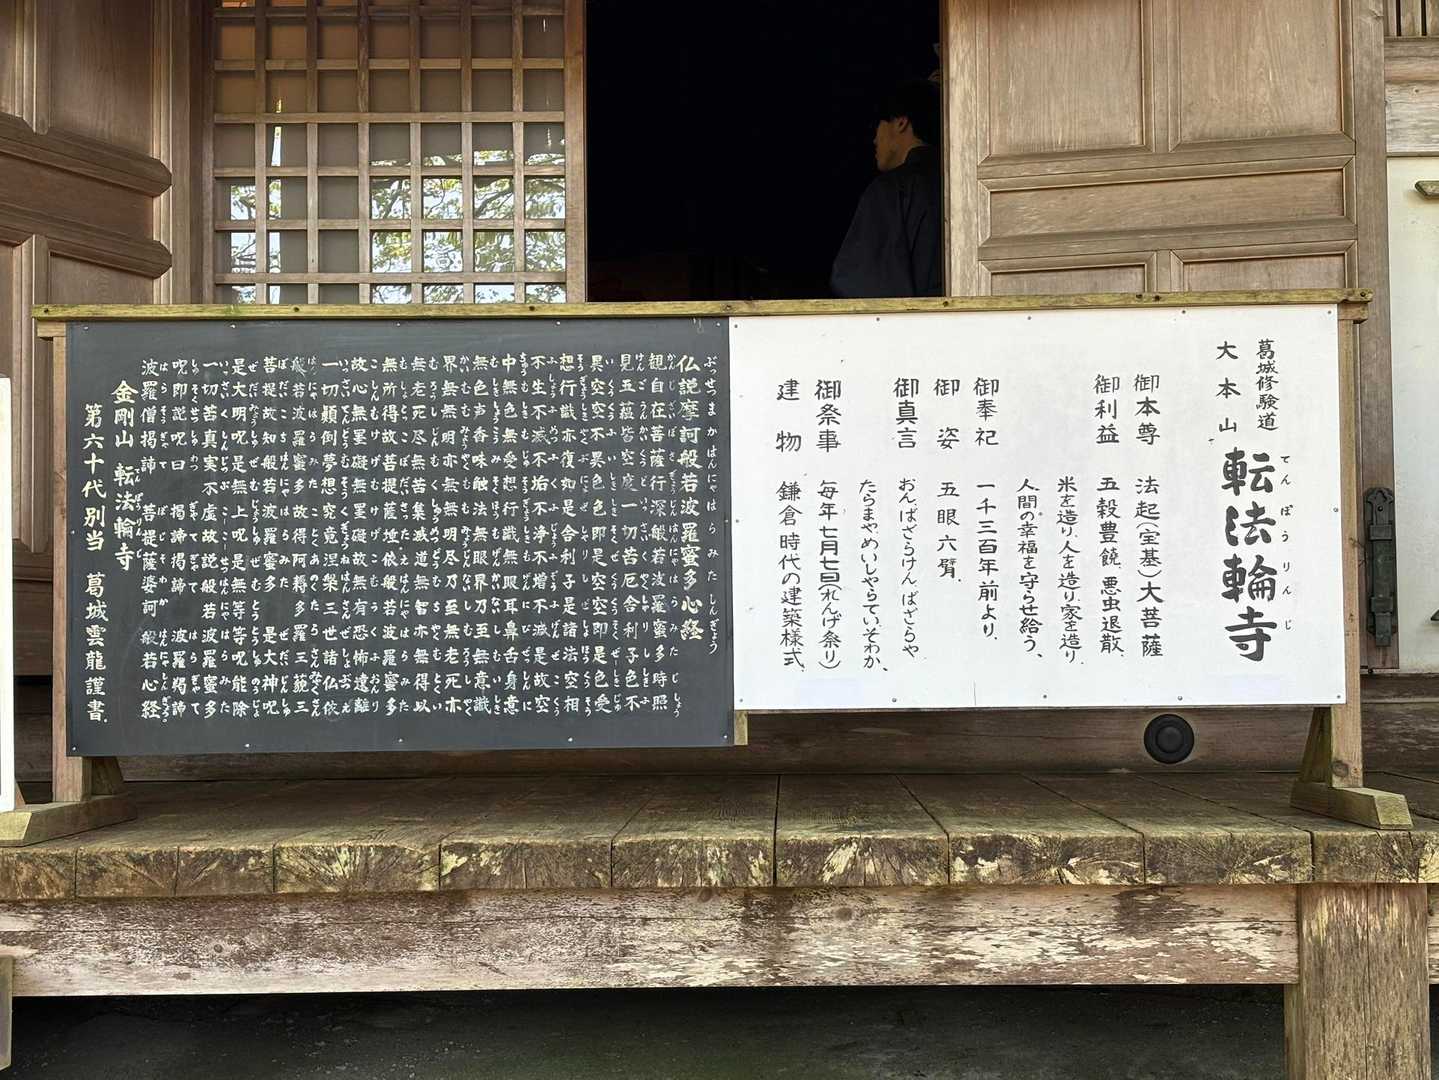 葛城修験道
大本山 転法輪寺
てんぽうりんじ
御本尊 法起(宝基)大菩薩
御利益 五穀豊饒、悪虫退散、
米を造り、人を造り、家を造り、
人間の幸福を守らせ給う、
御奉祀 一千三百年前より、
御姿 五眼六臂、
御真言 おんばざらけんばざらや
たらまやめいしやらていそわか、
御祭事 毎年七月七日(れんげ祭り)
建物 鎌倉時代の建築様式、
ぶっせつまかはんにゃはらみたしんぎょう
仏説摩訶般若波羅蜜多心経
観自在菩薩行深般若波羅蜜多時照
見五蘊皆空度一切苦厄舎利子色不
異空空不異色色即是空空即是色受
想行識亦復如是舎利子是諸法空相
不生不滅不垢不浄不増不減是故空
中無色無受想行識無眼耳鼻舌身意
無色声香味触法無眼界乃至無意識
界無無明亦無無明尽乃至無老死亦
無老死尽無苦集滅道無智亦無得以
無所得故菩提薩埵依般若波羅蜜多
故心無罣礙無罣礙故無有恐怖遠離
一切顛倒夢想究竟涅槃三世諸仏依
般若波羅蜜多故得阿耨多羅三藐三
菩提故知般若波羅蜜多 是大神呪
是大明呪是無上呪是無等等呪能除
一切苦真実不虚故説般若波羅蜜多
呪即説呪曰 掲諦掲諦 波羅羯諦
波羅僧掲諦 菩提薩婆訶 般若心経
金剛山 転法輪寺
てんぽうりんじ
第六十代別当 葛城雲龍謹書、